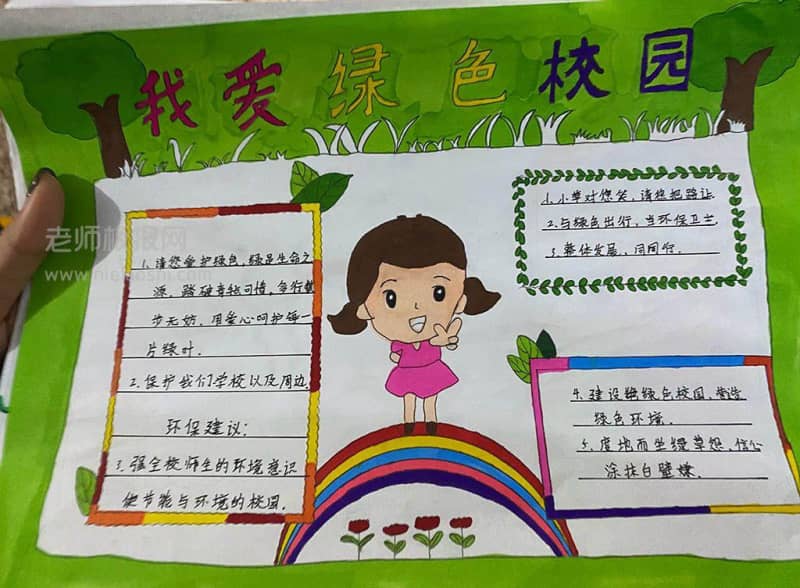 我爱绿色校园
1. 请您爱护绿色，绿是生命之
源，踏破青毯可惜，多行数
步无妨，用爱心呵护每一
片绿叶.
2. 保护我们学校以及周边
环保建议：
3. 强全校师生的环境意识
使节能与环境的校园.
1. 小草对您笑，请您把路让
2. 与绿色出行，当环保卫士
3. 整体发展，同同行.
4. 建设绿色校园，营造
绿色环境.
5. 席地而坐绿草怨，信心
涂抹白壁嫌.
老师板报网